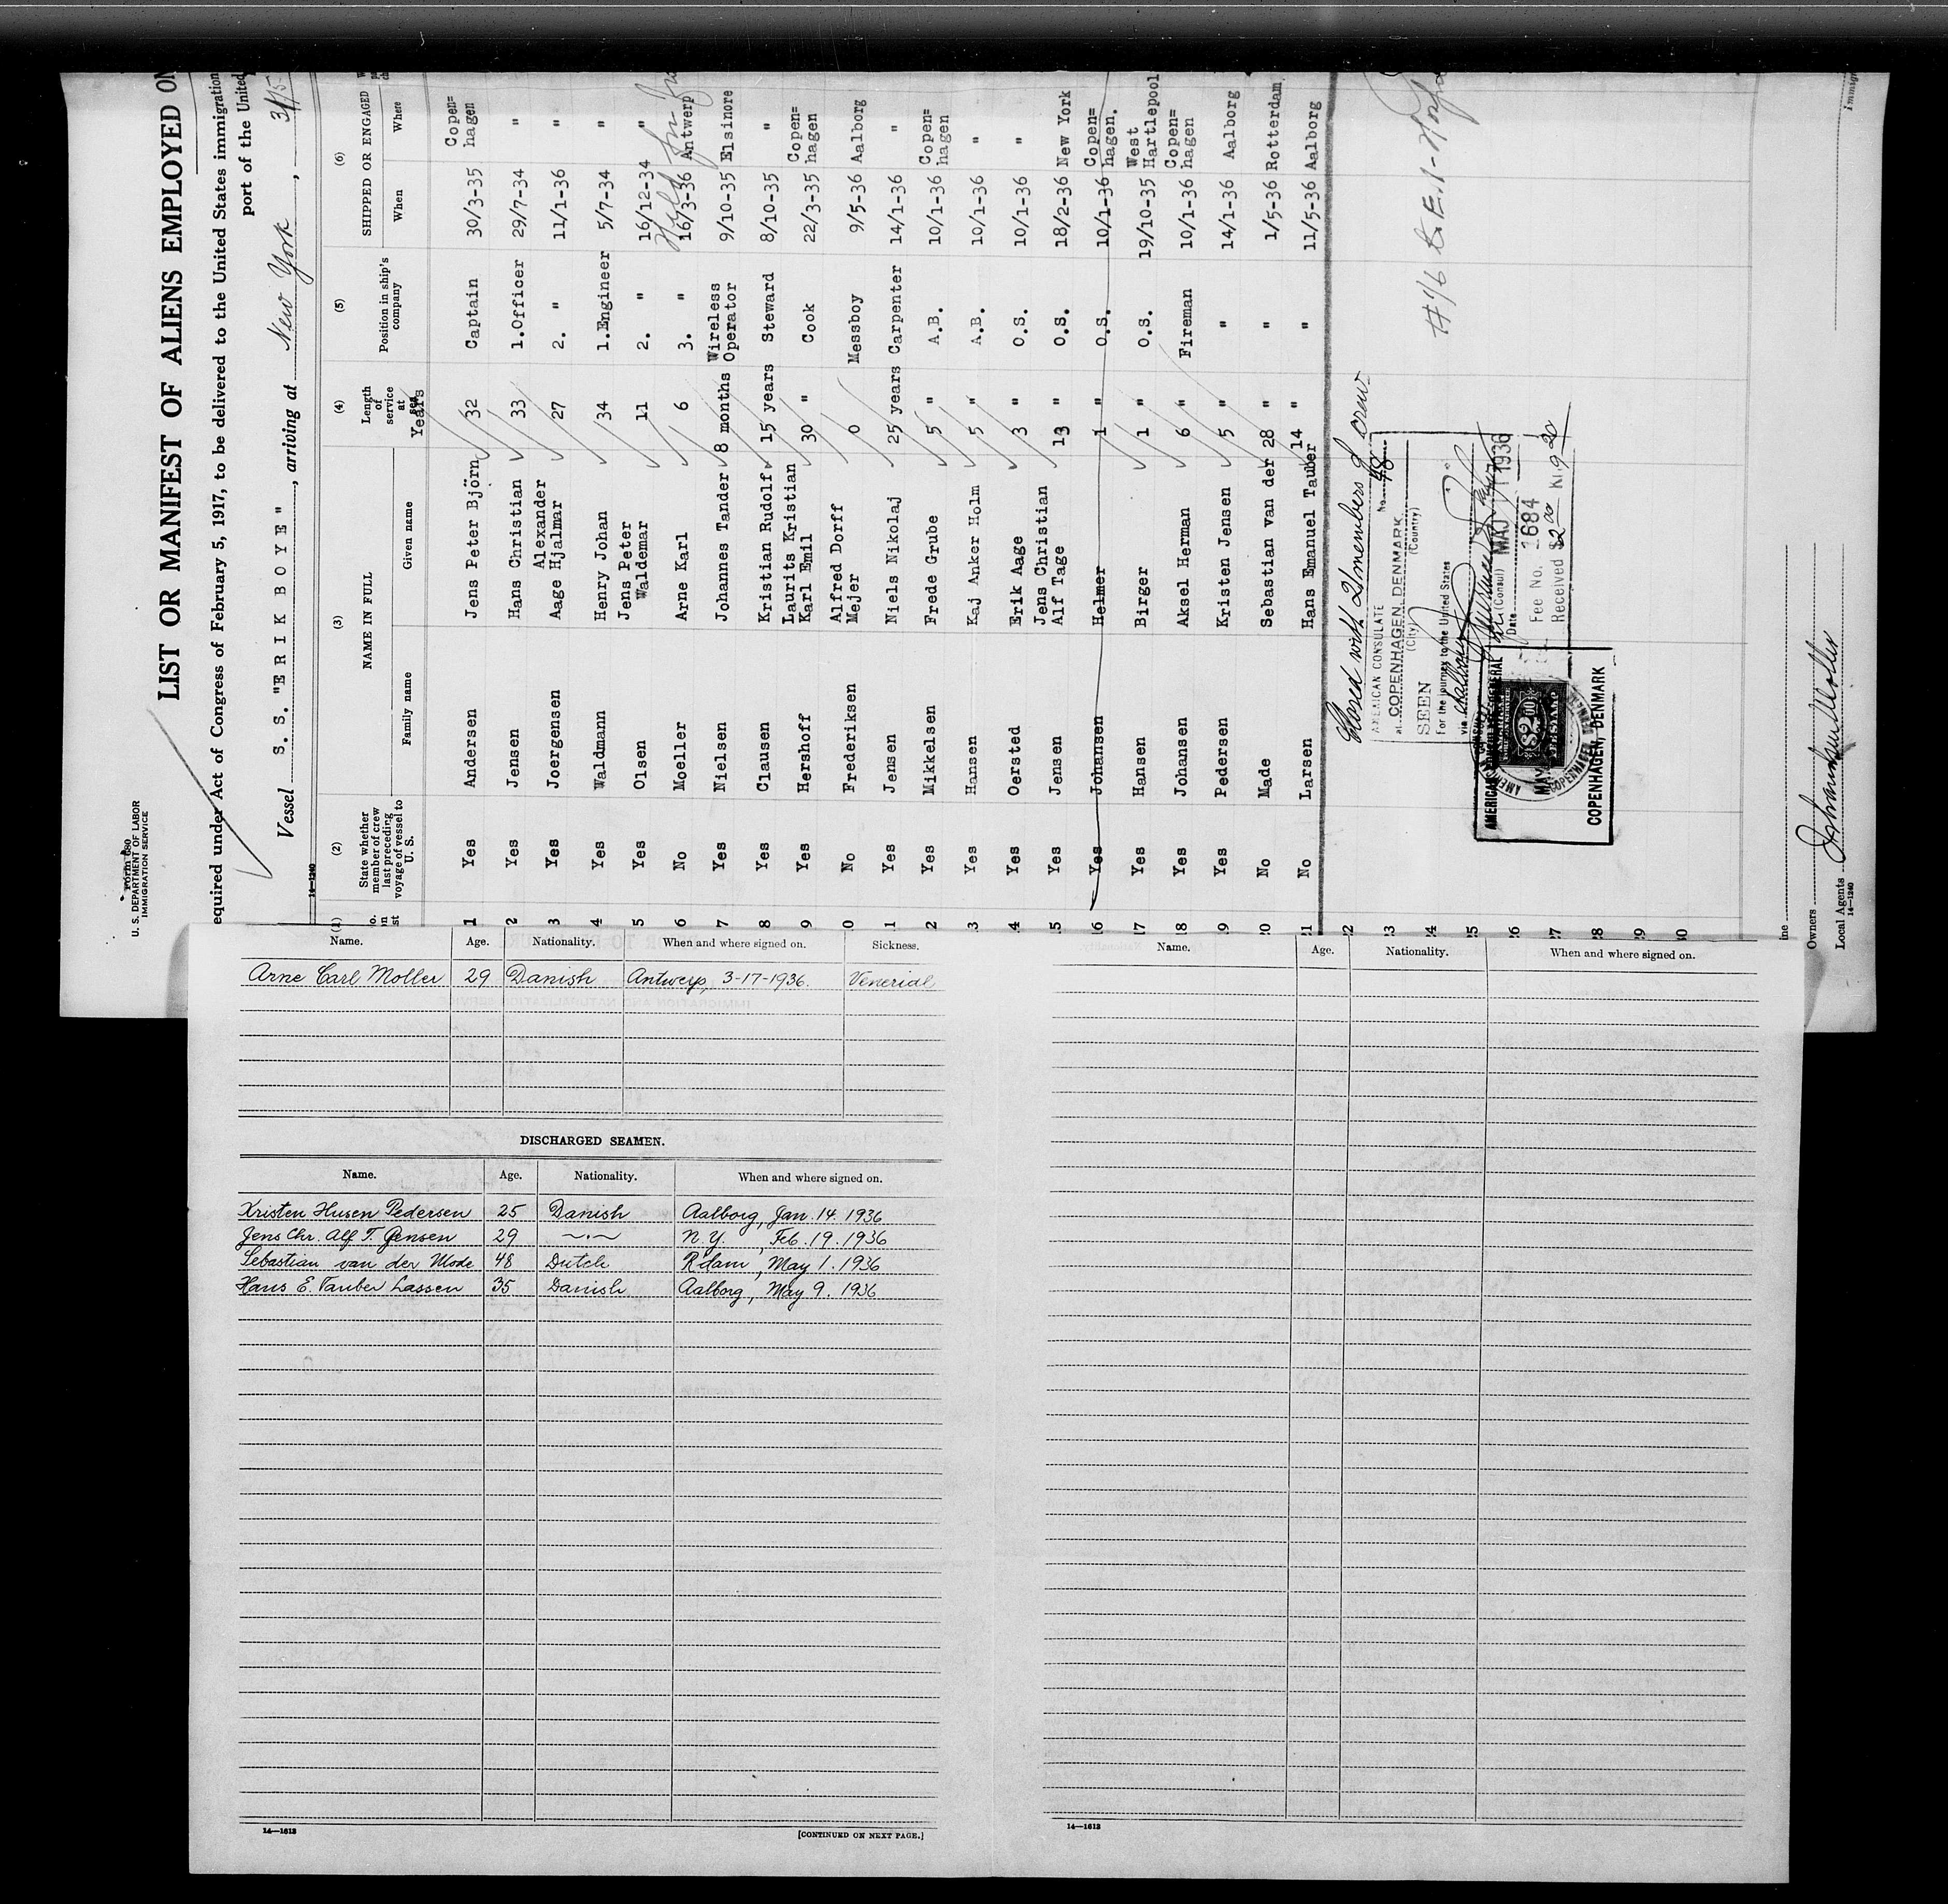 Form 680
U. S. DEPARTMENT OF LABOR
IMMIGRATION SERVICE
LIST OR MANIFEST OF ALIENS EMPLOYED ON
equired under Act of Congress of February 5, 1917, to be delivered to the United States immigration
port of the United
Vessel S. S. "ERIK BOYE", arriving at New York,
14—1240
(1) (2) (3) (4) (5) (6)
State whether member of crew last preceding voyage of vessel to U. S.
NAME IN FULL
Family name Given name
Length of service at sea
Years
Position in ship's company
SHIPPED OR ENGAGED
When Where
1 Yes Andersen Jens Peter Björn 32 Captain 30/3-35 Copen=hagen
2 Yes Jensen Hans Christian 33 1.Officer 29/7-34 "
3 Yes Joergensen Alexander Aage Hjalmar 27 2. " 11/1-36 "
4 Yes Waldmann Henry Johan 34 1.Engineer 5/7-34 "
5 Yes Olsen Jens Peter Waldemar 11 2. " 16/12-34 "
6 No Moeller Arne Karl 6 3. " 16/3-36 Antwerp
7 Yes Nielsen Johannes Tander 8 months Wireless Operator 9/10-35 Elsinore
8 Yes Clausen Kristian Rudolf 15 years Steward 8/10-35 "
9 Yes Hershoff Laurits Kristian Karl Emil 30 " Cook 22/3-35 Copen=hagen
0 No Frederiksen Alfred Dorff Mejer 0 Messboy 9/5-36 Aalborg
1 Yes Jensen Niels Nikolaj 25 years Carpenter 14/1-36 "
2 Yes Mikkelsen Frede Grube 5 " A.B. 10/1-36 Copen=hagen
3 Yes Hansen Kaj Anker Holm 5 " A.B. 10/1-36 "
4 Yes Oersted Erik Aage 3 " O.S. 10/1-36 "
15 Yes Jensen Jens Christian Alf Tage 13 " O.S. 18/2-36 New York
16 Yes Johansen Helmer 1 " O.S. 10/1-36 Copen=hagen.
17 Yes Hansen Birger 1 " O.S. 19/10-35 West Hartlepool
18 Yes Johansen Aksel Herman 6 " Fireman 10/1-36 Copen=hagen
19 Yes Pedersen Kristen Jensen 5 " " 14/1-36 Aalborg
20 No Made Sebastian van der 28 " " 1/5-36 Rotterdam
21 No Larsen Hans Emanuel Tauber 14 " " 11/5-36 Aalborg
22
23
24
25
26
27
28
29
30
Closed with 21 members of crew
AMERICAN CONSULATE No. 48
at COPENHAGEN, DENMARK
(City) (Country)
SEEN
For the journey to the United States
via
(Consul)
Date MAJ 1936
Fee No. 1684
Received $2.00
AMERICAN CONSULATE GENERAL
$2.00
COPENHAGEN, DENMARK
Owners
Local Agents
14—1240
Name. Age. Nationality. When and where signed on. Sickness.
Arne Carl Moller 29 Danish Antwerp, 3-17-1936. Venerial
DISCHARGED SEAMEN.
Name. Age. Nationality. When and where signed on.
Kristen Husen Pedersen 25 Danish Aalborg, Jan. 14. 1936
Jens Chr. Alf T. Jensen 29 —.— N.Y., Feb. 19. 1936
Sebastian van der Mode 48 Dutch Rdam, May 1. 1936
Hans E. Tauber Lassen 35 Danish Aalborg, May 9. 1936
14—1613
[CONTINUED ON NEXT PAGE.]
Name. Age. Nationality. When and where signed on.
14—1613